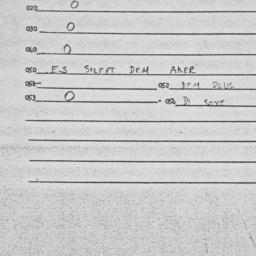 020 0
030 0
040 0
050 ES SLEPT DEM AKER
051 052 DEM PLUG
053 0 054 DI SOVE